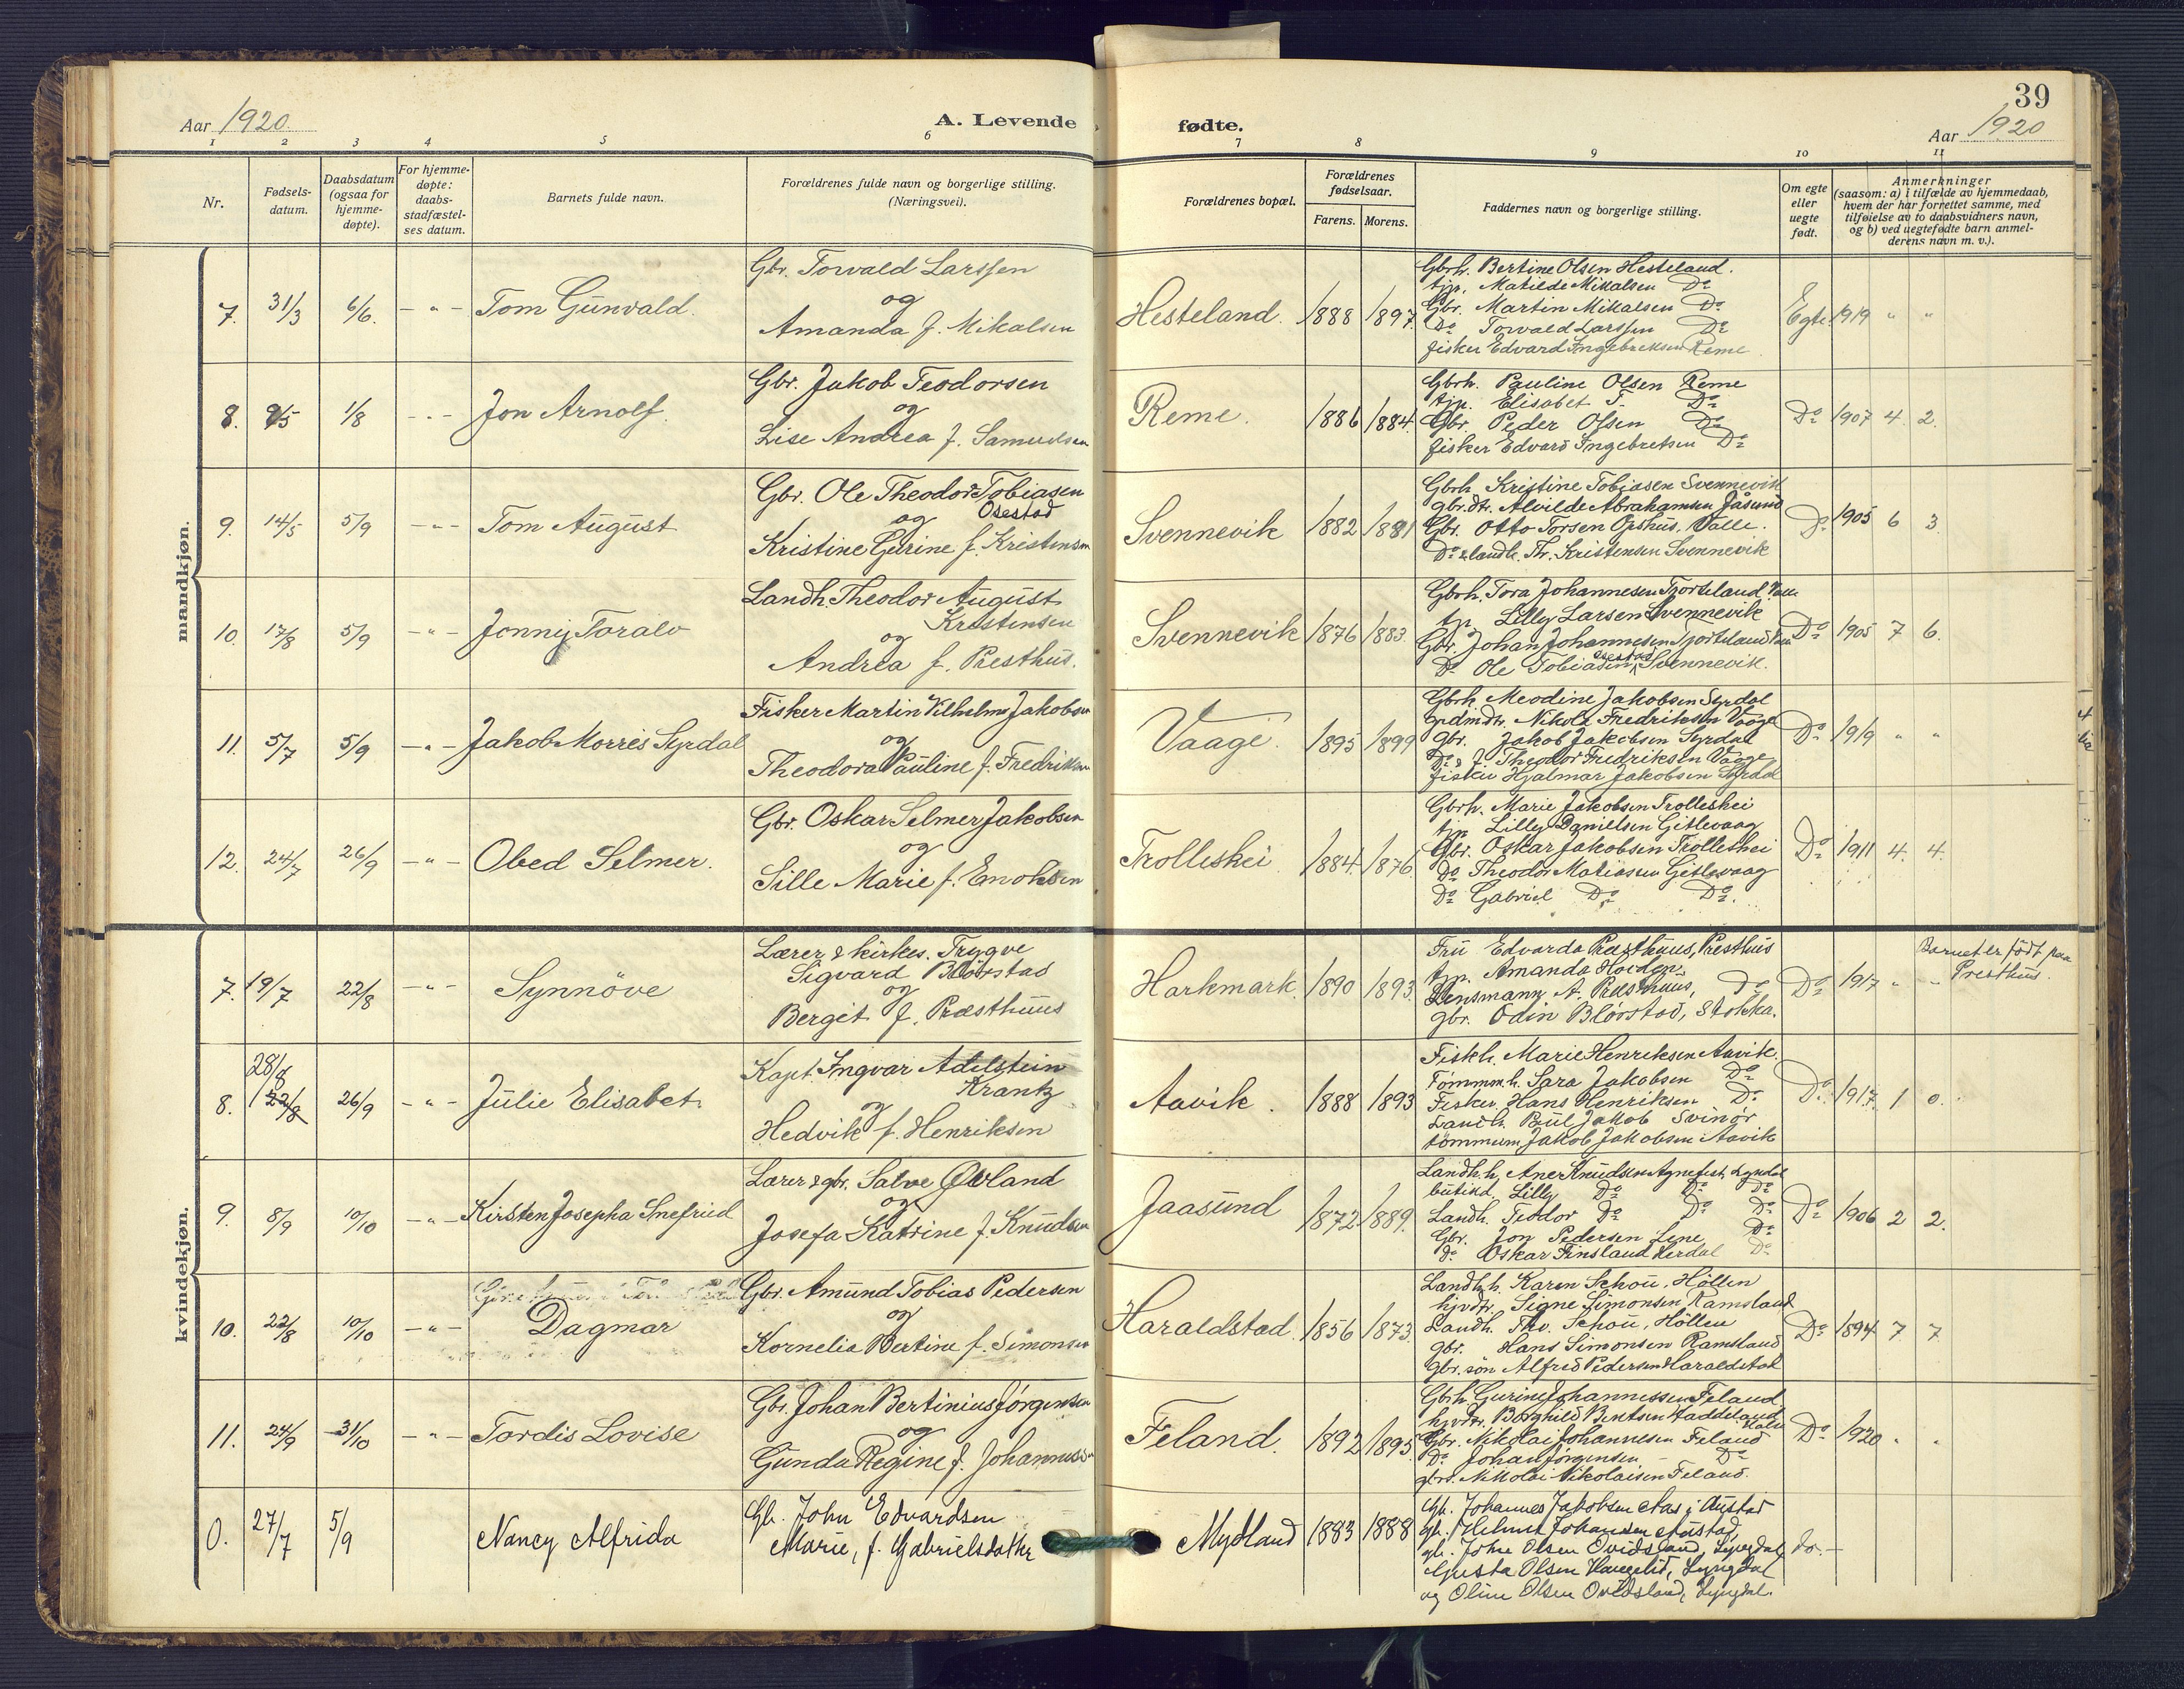 39
Aar 1920.
A. Levende
fødte.
Aar 1920
1 2 3 4 5 6 7 8 9 10 11
Nr.
Fødsels-
datum.
Daabsdatum
(ogsaa for
hjemme-
døpte).
For hjemme-
døpte:
daabs-
stadfæstel-
ses datum.
Barnets fulde navn.
Forældrenes fulde navn og borgerlige stilling.
(Næringsvei).
Forældrenes bopæl.
Forældrenes
fødselsaar.
Farens. Morens.
Faddernes navn og borgerlige stilling.
Om egte
eller
uegte
født.
Anmerkninger
(saasom: a) i tilfælde av hjemmedaab,
hvem der har forrettet samme, med
tilføielse av to daabsvidners navn,
og b) ved uegtefødte barn anmel-
derens navn m. v.).
mandkjøn.
7. 31/3 6/6. - " - Tom Gunvald.
Gbr. Torvald Larssen
og
Amanda f. Mikalsen
Hesteland. 1888 1897.
Gbrh. Bertine Olsen Hesteland.
tjp. Matilde Mikalsen Do
Gbr. Martin Mikalsen Do
Do Torvald Larssen Do
fisker Edvard Ingebretsen Reme.
Egte. 1919 " "
8. 9/5 1/8 - " - Jon Arnolf.
Gbr. Jakob Teodorsen
og
Lise Andrea f. Samuelsen
Reme. 1886 1884.
Gbrh. Pauline Olsen Reme
tjp. Elisabet T. Do
Gbr. Peder Olsen Do
fisker Edvard Ingebretsen Do
Do 1907 4 2.
9. 14/5 5/9 - " - Tom August
Gbr. Ole Theodor Tobiasen
Osestad
og
Kristine Gurine f. Kristensen
Svennevik 1882 1881
Gbrh Kristine Tobiasen Svennevik
gbrdtr. Alvilde Abrahamsen Jåsund
Gbr. Otto Torsen Opshus. Valle.
Do & landh. Th. Kristensen Svennevik
Do 1905 6 3
10. 17/8 5/9 - " - Jonny Toralv
Landh. Theodor August
Kristensen
og
Andrea f. Presthus.
Svennevik 1876 1883
Gbrh. Tora Johannesen Tjortsland Valle
tjp. Lilly Larsen Svennevik
Gbr. Johan Johannesen Tjortsland
Do Ole Tobiasen Osestad Svennevik.
Do 1905 7 6.
11. 5/7 5/9 - " - Jakob Morres Syrdal
Fisker Martin Vilhelm Jakobsen
og
Theodora Pauline f. Fredriksen
Vaage. 1895 1899
Gbrh. Meodine Jakobsen Syrdal
Nikola Fredriksen Vaage
gbr. Jakob Jakobsen Syrdal
Do & f Theodor Fredriksen Vaage
fisker Hjalmar Jakobsen Syrdal
Do 1919 " "
12. 24/7 26/9 - " - Obed Selmer.
Gbr. Oskar Selmer Jakobsen
og
Sille Marie f. Enoksen
Trolleshei 1884. 1876.
Gbrh. Marie Jakobsen Trolleshei
tjp. Lilly Danielsen Gitlevaag
Gbr. Oskar Jakobsen Trolleshei
Do Theodor Matiassen Gitlevaag
Do Gabriel Do Do.
Do 1911 4. 4.
kvindekjøn.
7. 19/7 22/8 - " - Synnöve
Lærer & kirkes. Trygve
Sigvard Blörstad
og
Bergit f. Præsthuus
Harkmark. 1890 1893.
Fru Edvarda Præsthuus, Presthus
tjp. Amanda
Lensmann A. Præsthuus, Do
gbr. Odin Blörstad, Stokka.
Do 1917 " " Barnet er født paa
Presthus.
8. 28/8 22/8 26/9 - " - Julie Elisabet
Kapt. Ingvar Adelstein
Krantz
og
Hedvik f. Henriksen
Aavik. 1888 1893
Fiskh. Marie Henriksen Aavik.
Tömmmh. Sara Jakobsen Do
Fisker Hans Henriksen Do
Landh. Paul Jakob Svinör
tömmerm Jakob Jakobsen Aavik
Do. 1917. 1 0.
9. 8/9 10/10 - " - Kirsten Josepha Snefried
Lærer & gbr. Salve Øvland
og
Josefa Katrine f. Knudsen
Jaasund 1872 1889.
Landh.h. Ane Knudsen Agnefest, Lyngdal
butikd. Lilly Do Do Do
Landh. Teodor Do Do Do
Gbr. Jon Pedersen Lene Do
Do Oskar Finsland Herdal Do
Do 1906 2 2.
10. 22/8 10/10 - " - Dagmar
Gbr. Amund Tobias Pedersen
og
Kornelia Bertine f. Simonsen
Haraldstad. 1856 1873.
Landh.h. Karen Schou, Höllen
hjvdtr. Signe Simonsen Ramsland
Landh. Thv. Schou, Höllen
gbr. Hans Simonsen Ramsland
Gbr. sön Alfred Pedersen Haraldstad
Do 1894 7 7.
11. 24/9 31/10 - " - Tordis Lovise
Gbr. Johan Bertinius Jörgensen
og
Gunda Regine f. Johannessen
Feland. 1892 1895
Gbrh. Gurine Johannessen Feland
hjvdtr. Borghild Bentsen Haddeland
Gbr. Nikolai Johannesen Feland
Do Johan Jörgensen Do
gbrs. Nikolai Nikolaisen Feland.
Do 1920 " "
0. 27/7 5/9 Nancy Alfrida
Gb. John Edvardsen
Marie, f. Gabrielsdatter
Mydland 1883 1888
Gb. Johannes Jakobsen Aas i Austad
gb. Helmer Johansen Austad,
gb. John Olsen Ovidsland, Lyngdal,
Gusta Olsen Lyngdal
og Oline Olsen Ovidsland, Lyngdal.
do. -